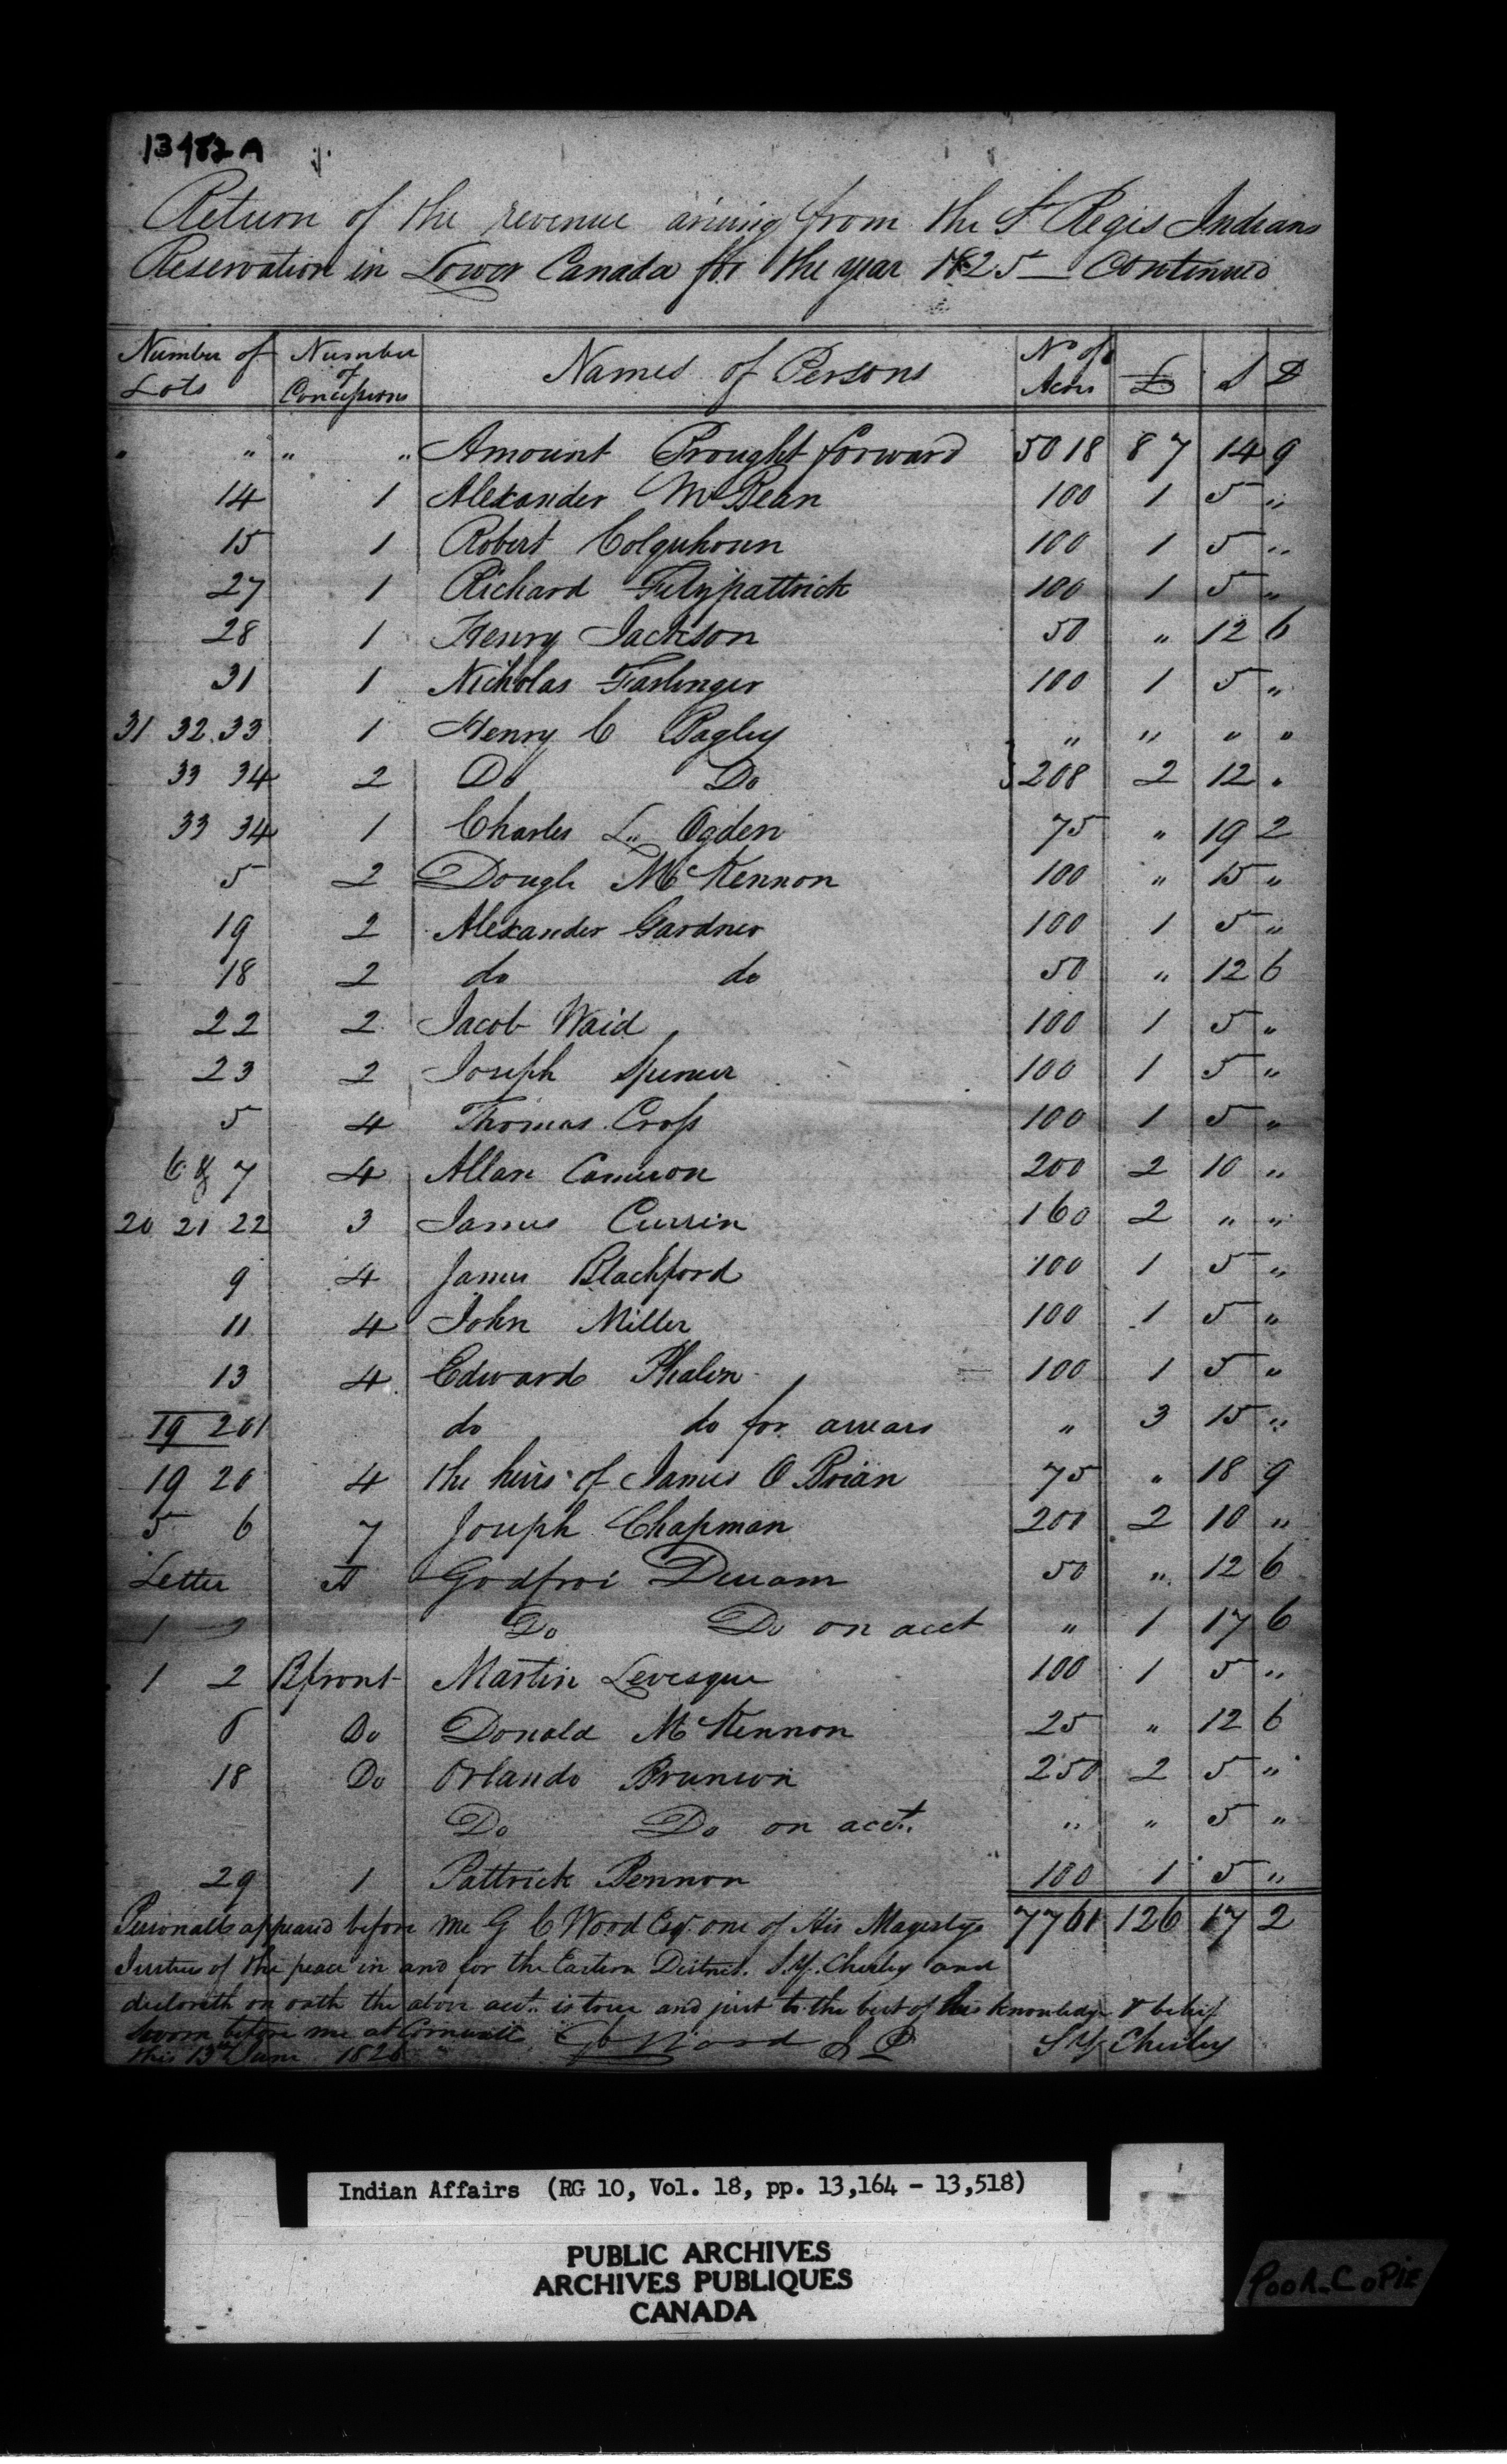 13482A
Return of the revenue arising from the St Regis Indians
Reservation in Lower Canada for the year 1825 — Continued
Number of Lots Number of Concessions Names of Persons No of Acres £ S D
" " " " Amount Brought forward 5018 87 14 9
14 1 Alexander McBean 100 1 5 "
15 1 Robert Colquhoun 100 1 5 "
27 1 Richard Fitzpattrick 100 1 5 "
28 1 Henry Jackson 50 " 12 6
31 1 Nicholas Farlinger 100 1 5 "
31 32.33 1 Henry C Bagley " " " "
33 34 2 Do Do 208 2 12 "
33 34 1 Charles L. Ogden 75 " 19 2
5 2 Dougle McKennon 100 " 15 "
19 2 Alexander Gardner 100 1 5 "
18 2 do do 50 " 12 6
22 2 Jacob Waid 100 1 5 "
23 2 Joseph Spencer 100 1 5 "
5 4 Thomas Cross 100 1 5 "
6 & 7 4 Allan Cameron 200 2 10 "
20 21 22 3 James Currin 160 2 " "
9 4 James Blackford 100 1 5 "
11 4 John Miller 100 1 5 "
13 4 Edward Phalen 100 1 5 "
19 20 do do for arrears " 3 15 "
19 20 4 the heirs of James O Brian 75 " 18 9
5 6 7 Joseph Chapman 200 2 10 "
Letter A Godfroi 50 " 12 6
1 2 Do Do on acct " 1 17 6
1 2 B front Martin Levesque 100 1 5 "
Do Donald McKennon 25 " 12 6
18 Do Orlando Brunson 250 2 5 "
Do Do on acct. " " 5 "
29 1 Pattrick Bennon 100 1 5 "
Personally appeared before me G C Wood Esqr. one of His Magestys 7761 126 17 2
Justices of the peace in and for the Eastern District. S.Y. Chesley and
declareth on oath the above acct. is true and just to the best of his knowledge & belief
Sworn before me at Cornwall G C Wood J P S Y Chesley
this 13th June 1826
Indian Affairs (RG 10, Vol. 18, pp. 13,164 - 13,518)
PUBLIC ARCHIVES
ARCHIVES PUBLIQUES
CANADA
POOR_COPIE